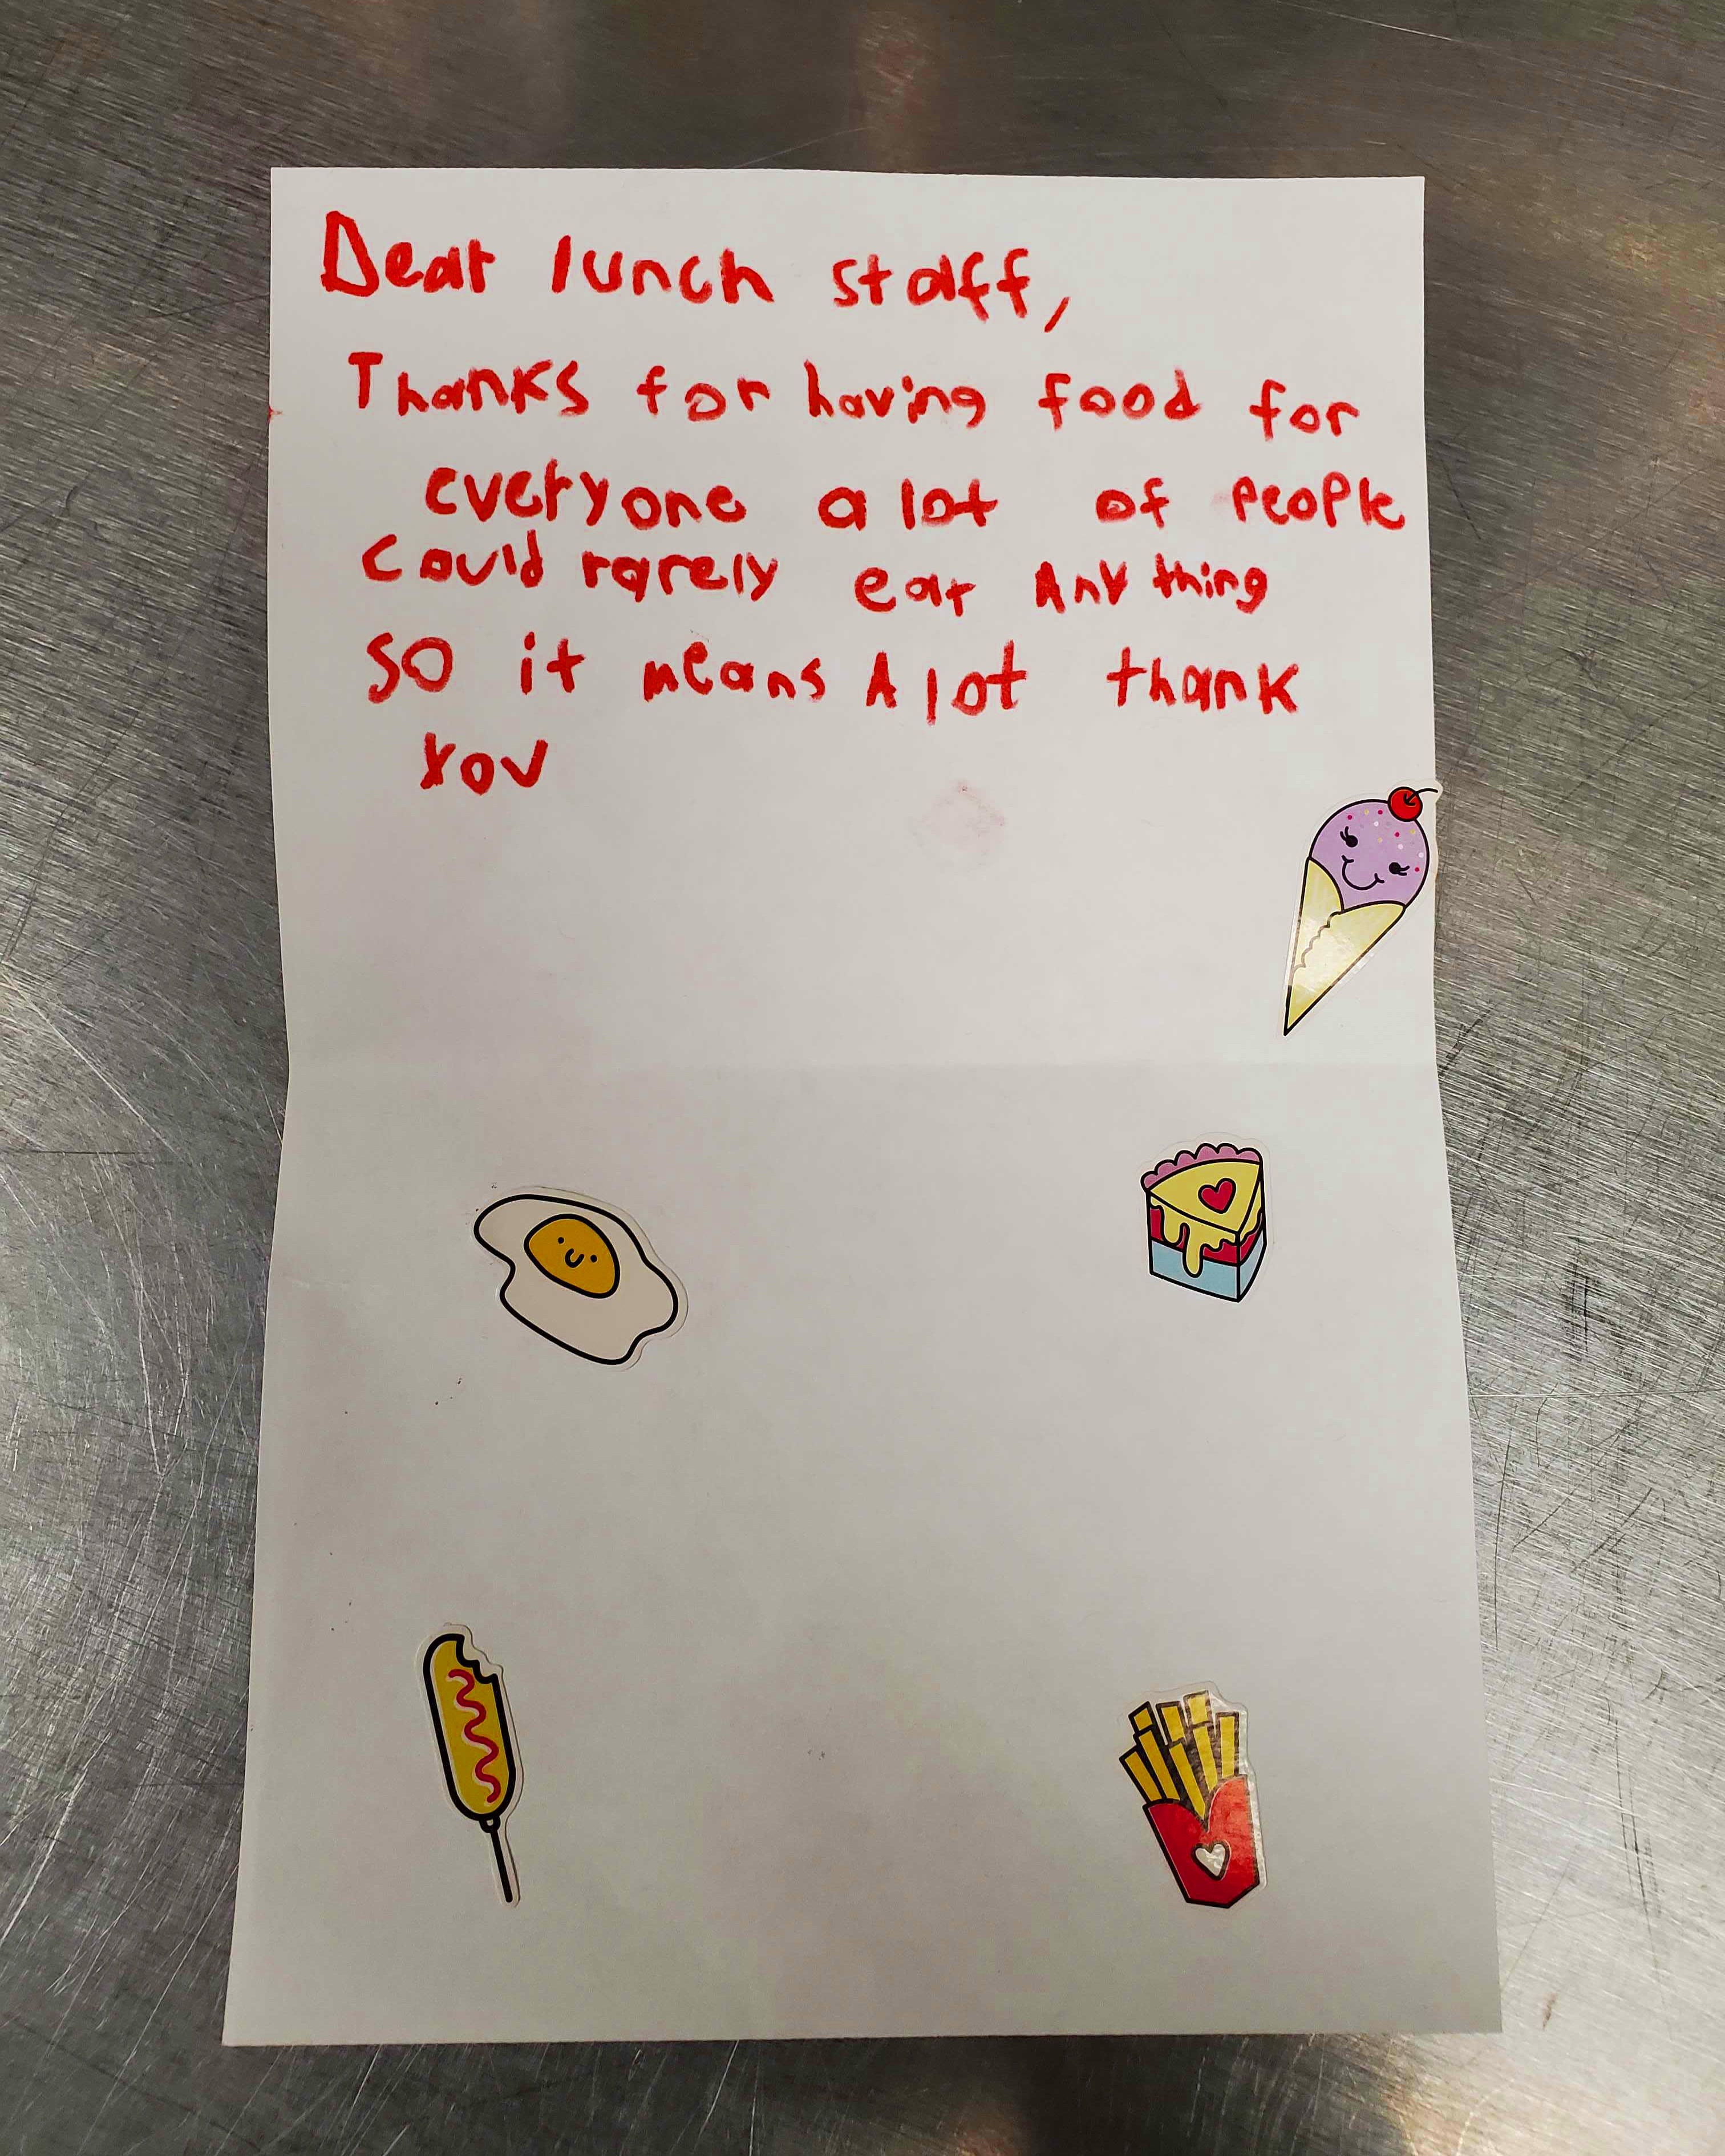 Dear lunch staff,
Thanks for having food for
everyone a lot of people
could rarely eat Anything
so it means A lot thank
you